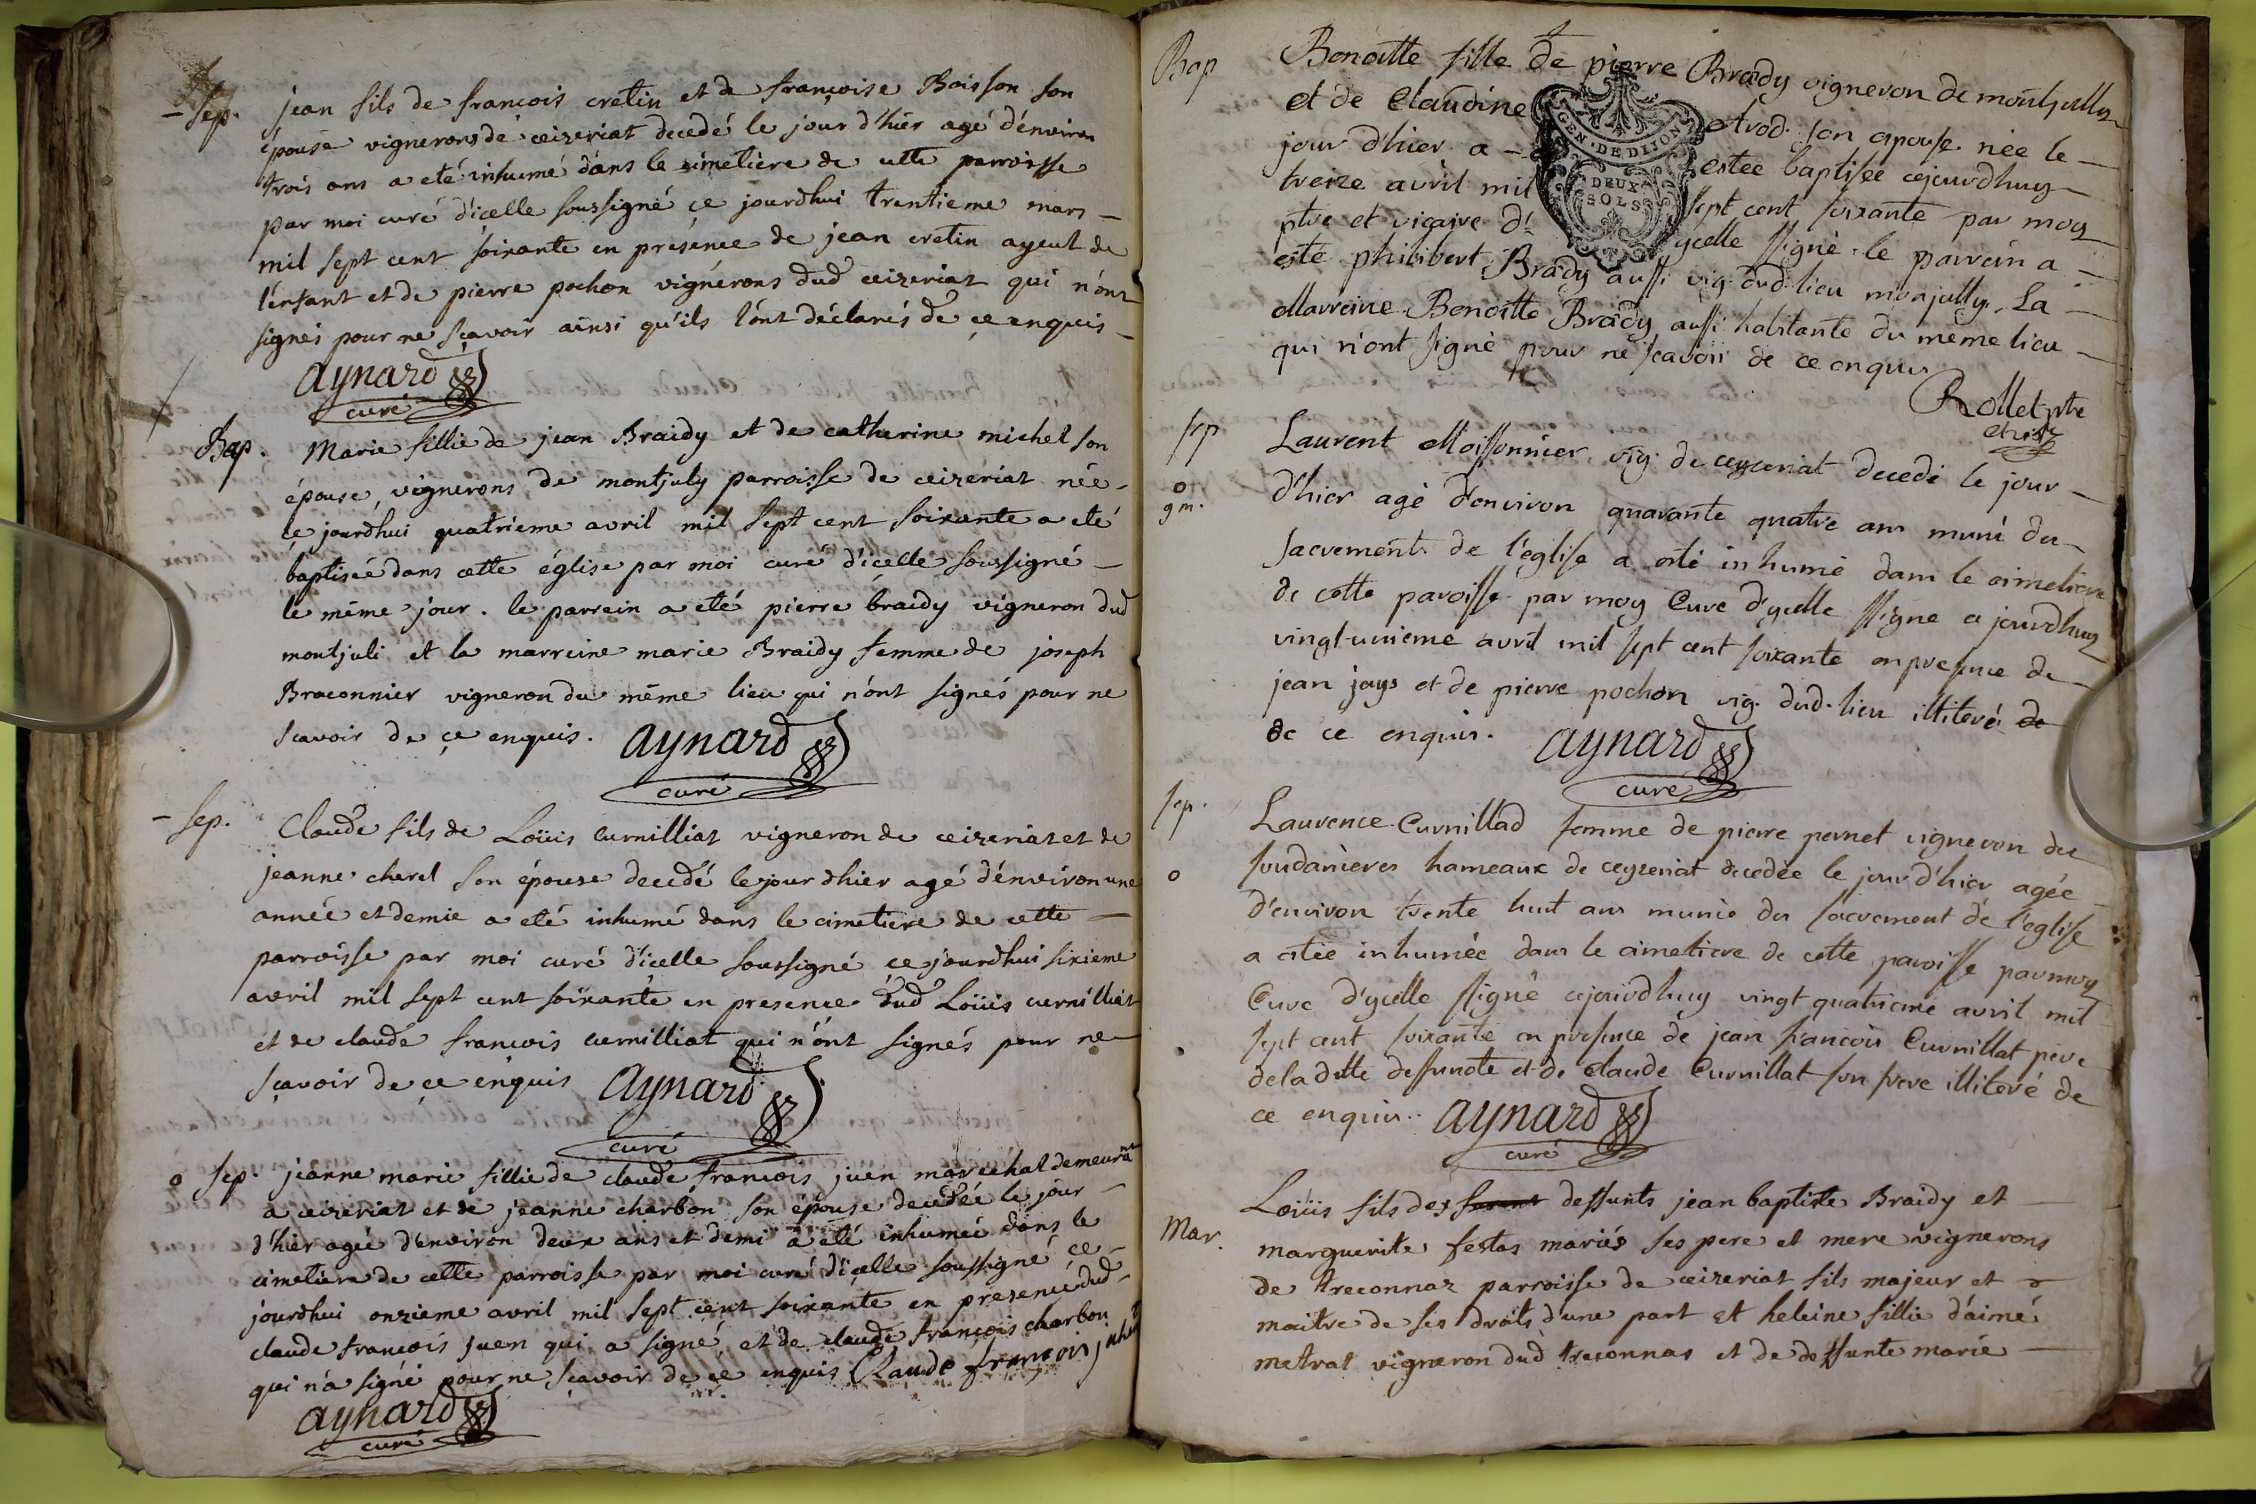 - Sep. jean fils de francois cretin et de françoise Boisson son
épouse vignerons de ceizeriat decedé le jour d'hier agé d'environ
trois ans a eté inhumé dans le cimetière de cette parroisse
par moi curé d'icelle soussigné ce jourdhui trentieme mars -
mil sept cent soixante en présence de jean cretin ayeul de
l'enfant et de pierre pochon vignerons dud ceizeriat qui n'ont
signés pour ne sçavoir ainsi qu'ils l'ont déclarés de ce enquis -
aynard
curé
Bap. Marie fillie de jean Braidy et de catherine michel son
épouse vignerons de montjuly parroisse de ceizeriat née -
ce jourdhui quatrieme avril mil sept cent soixante a eté
baptiseé dans cette église par moi curé d'icelle soussigné -
le même jour. le parrein a eté pierre braidy vigneron dud
montjuli et la marreine marie Braidy femme de joseph
Braconnier vigneron du même lieu qui n'ont signés pour ne
scavoir de ce enquis. aynard
curé
- Sep. Claude fils de Loüis curnilliat vigneron de ceizeriat et de
jeanne charel son épouse decedé le jour dhier agé d'environ une
année et demie a eté inhumé dans le cimetiere de cette -
parroisse par moi curé d'icelle soussigné ce jourdhui sixieme
avril mil sept cent soixante en presence dud Loüis curnilliat
et de claude francois curnilliat qui n'ont signés pour ne
sçavoir de ce enquis aynard
curé
o Sep. jeanne marie fillie de claude francois juen marechal demeurant
a ceizeriat et de jeanne charbon son épouse decedée le jour -
d'hier agée d'environ deux ans et demi a eté inhumeé dans le
cimetiere de cette parroisse par moi curé d'icelle soussigné ce -
jourdhui onzieme avril mil sept cent soixante en presence dud -
claude francois juen qui a signé, et de claude françois charbon
qui n'a signé pour ne sçavoir de ce enquis Claude françois juhen
aynard
curé
Bap Benoitte fille de pierre Braidy vigneron de montjully
et de Claudine son epouse née le -
jour d'hier a - estee baptisée cejourdhuy -
treize avril mil sept cent soixante par moy
ptre et vicaire d' ycelle signé. le parrein a -
GEN. DE DIJON
DEUX
SOLS
esté philibert Brady aussi vig. dud. lieu monjully. La -
Marreine Benoitte Braidy aussi habitante du même lieu -
qui n'ont signé pour ne scavoir de ce enquis
Rollet ptre
et vic
sep Laurent Moissonnier vig. de ceyzeriat decedé le jour -
o d'hier agé d'environ quarante quatre ans muni des -
g m. sacrements de l'église a esté inhumé dans le cimetiere
de cette paroisse par moy Curé d'ycelle ssigné cejourdhuy
vingt-unieme avril mil sept cent soixante en presence de
jean jays et de pierre pochon vig. dud. lieu illiteré de
de ce enquis. aynard
curé
sep. Laurence Curnillad femme de pierre pernet vigneron des
o soudanieres hameaux de ceyzeriat decedée le jour d'hier agée -
d'environ trente huit ans munie des sacrement de l'eglise
a estée inhumée dans le cimetiere de cette paroisse par moy
Curé d'ycelle ssigné cejourdhuy vingt quatrieme avril mil
sept cent soixante en presence de jean francois Curnillat pere
de la ditte deffuncte et de claude Curnillat son frere illiteré de
ce enquis. aynard
curé
Mar. Loüis fils des deffunts jean baptiste Braidy et -
marguerite festas mariés ses pere et mere vignerons
de treconnaz parroisse de ceizeriat fils majeur et
maitre de ses droits d'une part et heleine fillie d'aimé
metral vigneron dud treconnas et de deffunte marie -